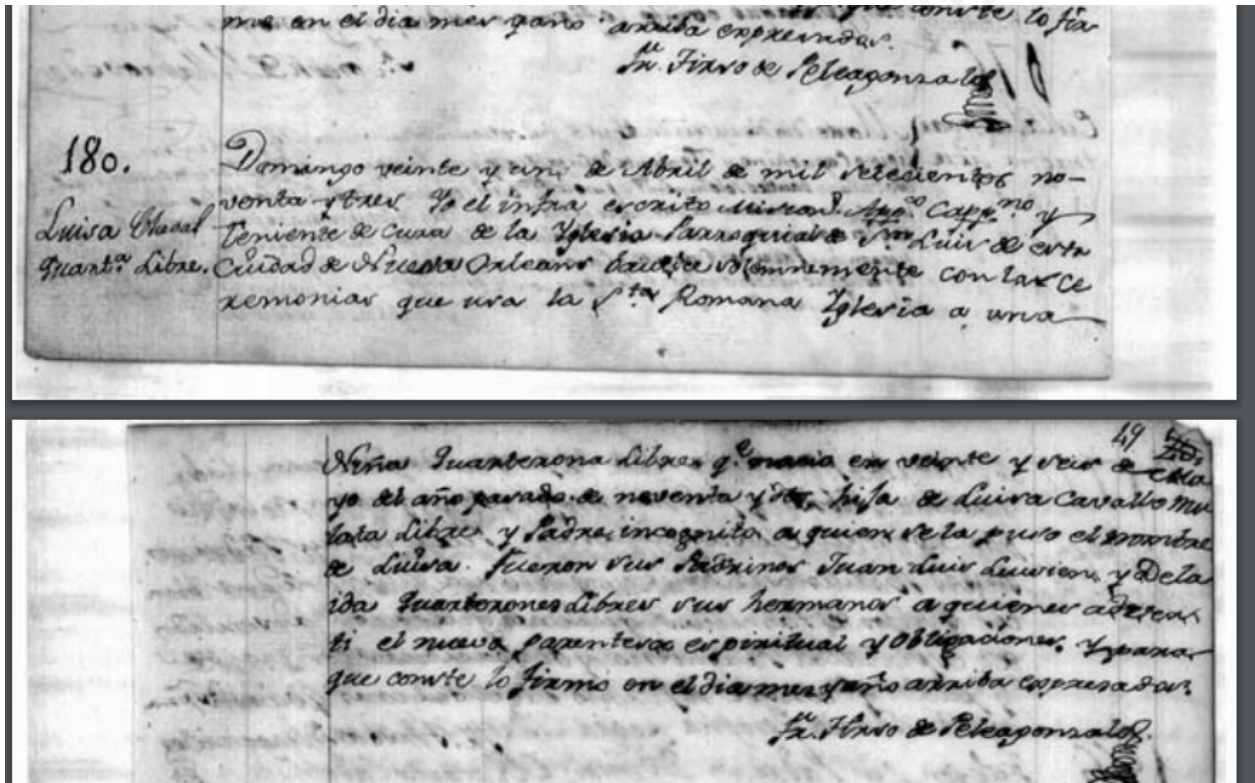 me en el dia mes y año arriba expresados.
Fr. Tirso de Peleagonzalo
180.
Luisa
Quart.a Libre.
Domingo veinte y un de Abril de mil setecientos no-
venta y tres Yo el infra escrito Mision.o App.co Capp.no y
Teniente de Cura de la Yglesia Parroquial de Sn Luis de esta
Ciudad de Nueva Orleans bautice solemnemente con las ce
remonias que usa la S.ta Romana Yglesia a una
49
Niña Quarterona Libre q.e nacio en veinte y seis de Ma
yo del año pasado de noventa y dos, hija de Luisa Cavallo mu
lata Libre y Padre incognito a quien se la puso el nombre
de Luisa. Fueron sus Padrinos Juan Luis y Dela
ida Quarterones Libres sus hermanos a quienes adver
ti el nuevo parentesco espiritual y obligaciones. Y para
que conste lo firmo en el dia mes y año arriba expresados.
Fr. Tirso de Peleagonzalo